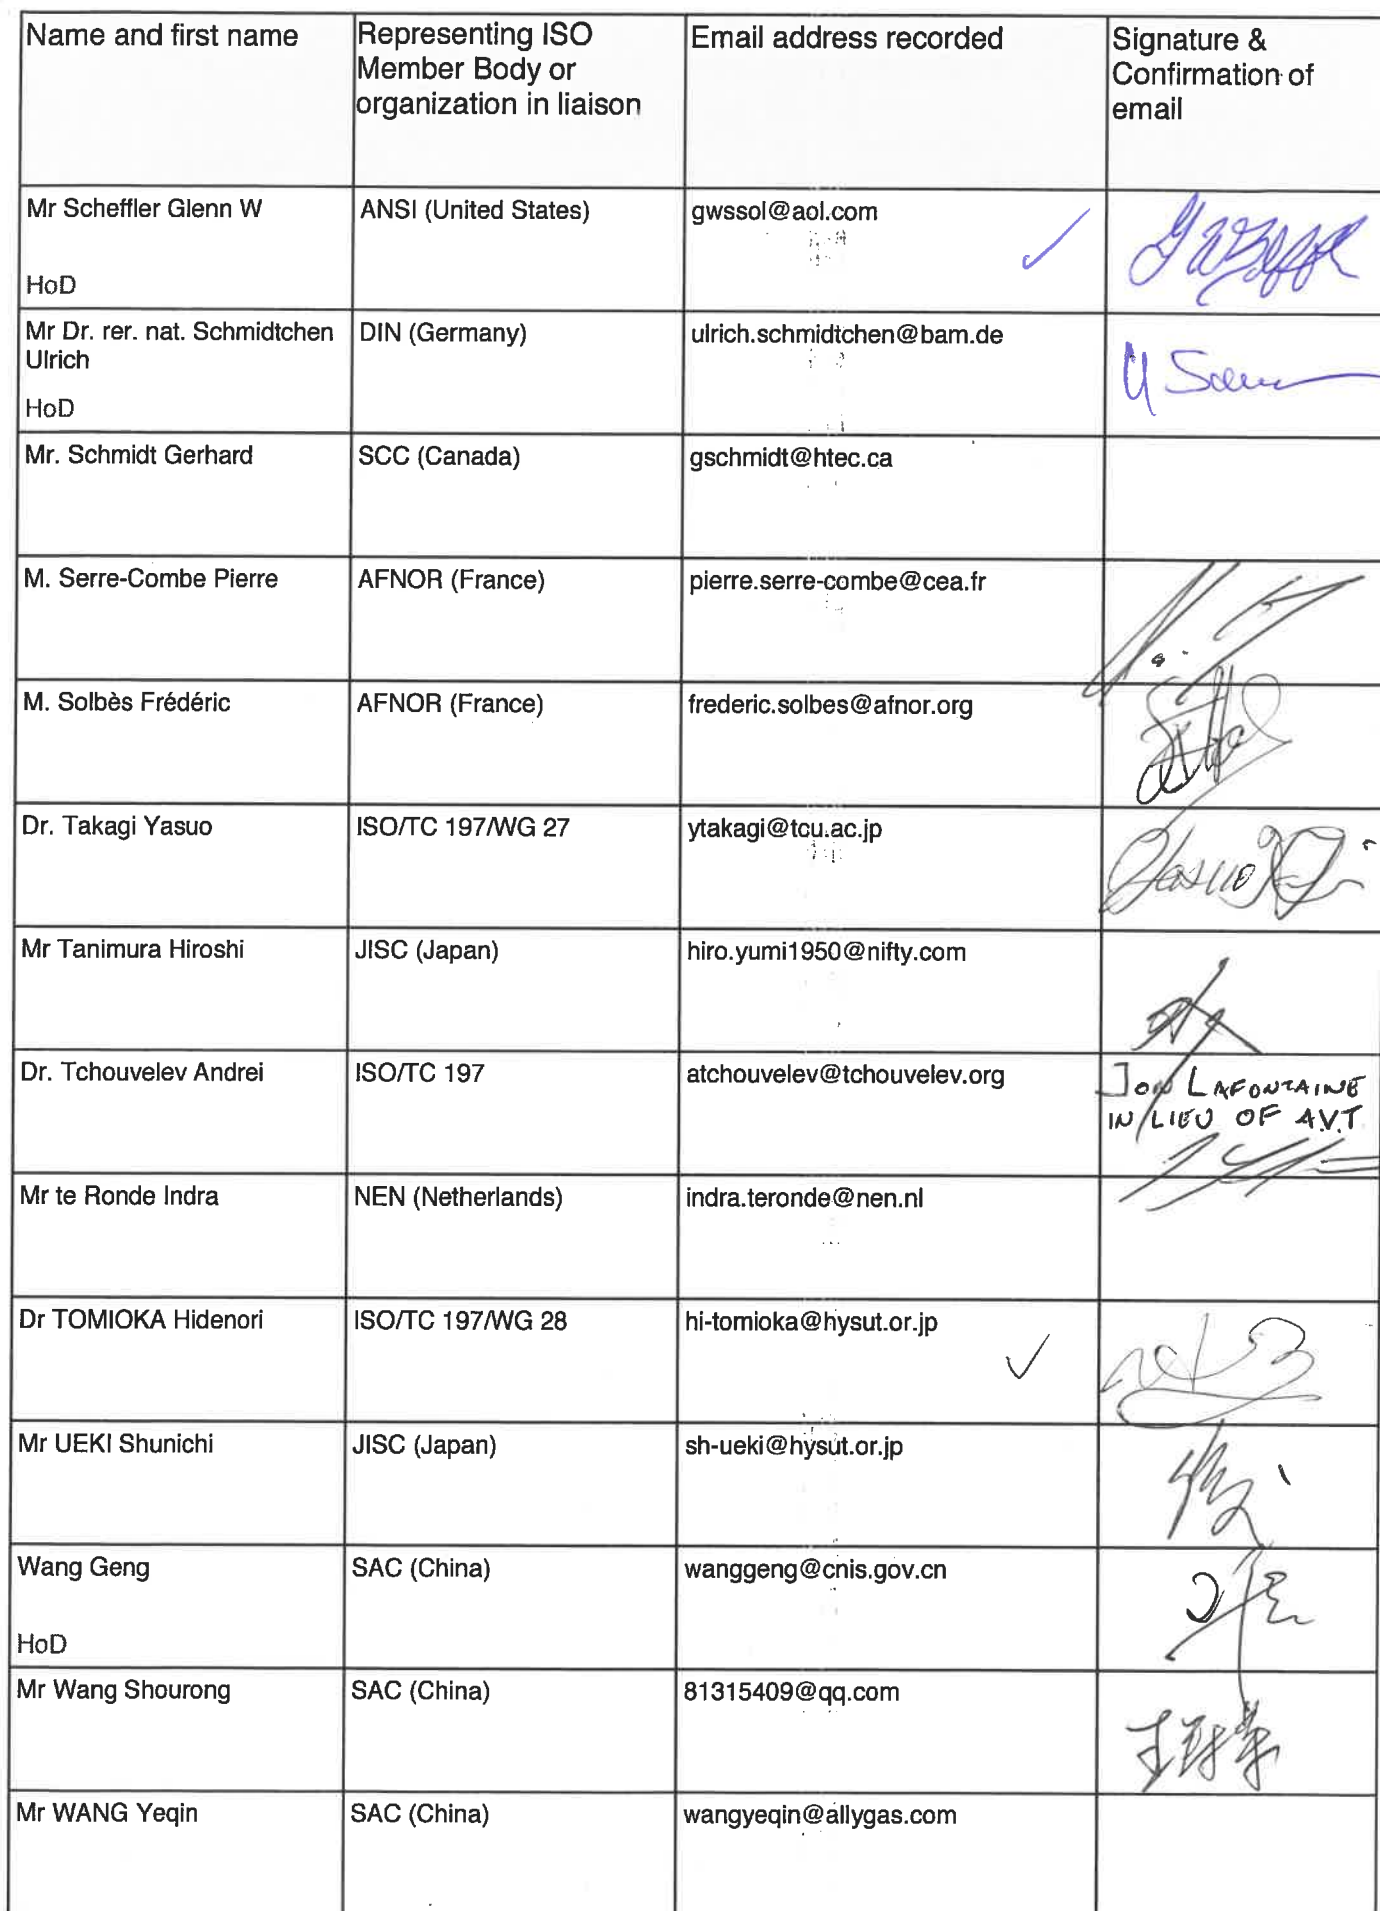 Name and first name
Representing ISO
Member Body or
organization in liaison
Email address recorded
Signature &
Confirmation of
email
Mr Scheffler Glenn W
HoD
ANSI (United States)
gwssol@aol.com
Mr Dr. rer. nat. Schmidtchen
Ulrich
HoD
DIN (Germany)
ulrich.schmidtchen@bam.de
Mr. Schmidt Gerhard
SCC (Canada)
gschmidt@htec.ca
M. Serre-Combe Pierre
AFNOR (France)
pierre.serre-combe@cea.fr
M. Solbès Frédéric
AFNOR (France)
frederic.solbes@afnor.org
Dr. Takagi Yasuo
ISO/TC 197/WG 27
ytakagi@tcu.ac.jp
Mr Tanimura Hiroshi
JISC (Japan)
hiro.yumi1950@nifty.com
Dr. Tchouvelev Andrei
ISO/TC 197
atchouvelev@tchouvelev.org
JON LAFONTAINE
IN LIEU OF A.V.T.
Mr te Ronde Indra
NEN (Netherlands)
indra.teronde@nen.nl
Dr TOMIOKA Hidenori
ISO/TC 197/WG 28
hi-tomioka@hysut.or.jp
Mr UEKI Shunichi
JISC (Japan)
sh-ueki@hysut.or.jp
Wang Geng
HoD
SAC (China)
wanggeng@cnis.gov.cn
Mr Wang Shourong
SAC (China)
81315409@qq.com
Mr WANG Yeqin
SAC (China)
wangyeqin@allygas.com